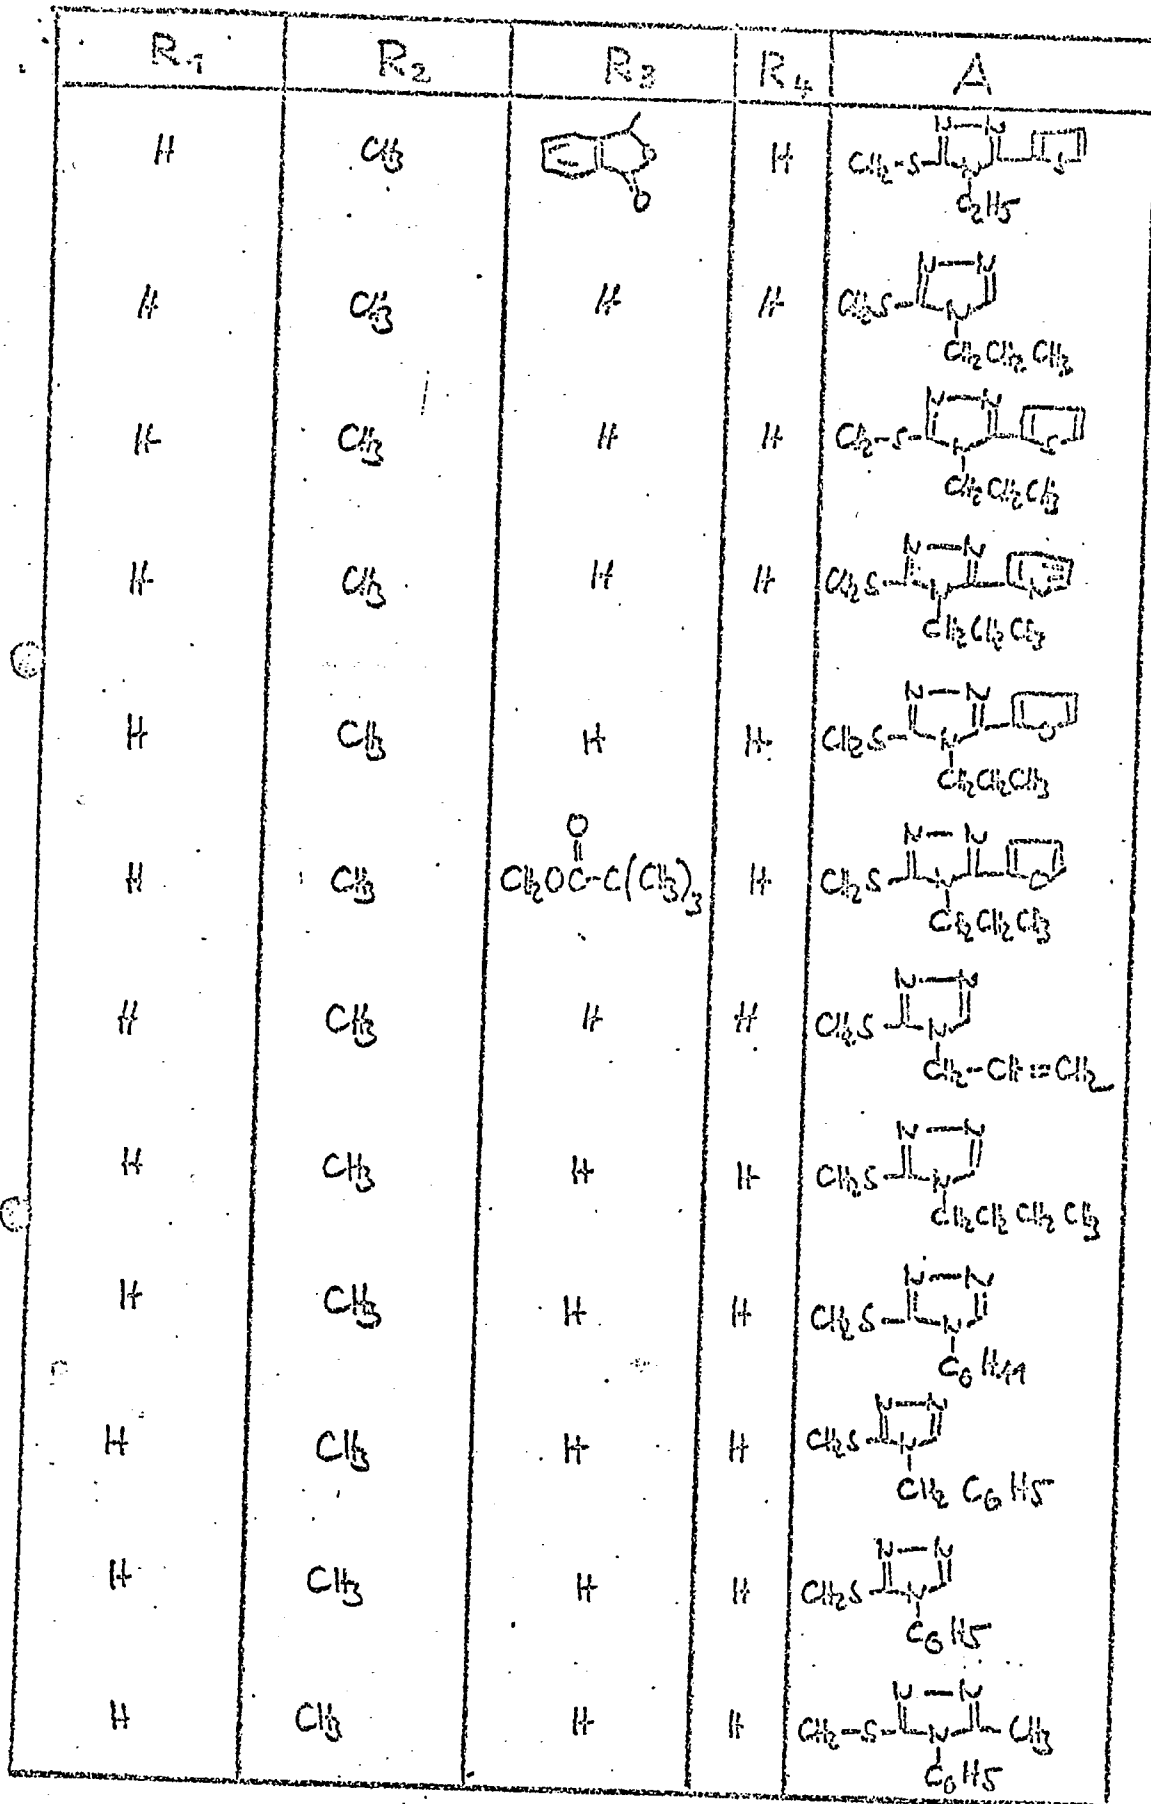 R1 R2 R3 R4 A
H CH3 O O H CH2-S N N N S
C2H5
H CH3 H H CH2S N N N
CH2 CH2 CH3
H CH3 H H CH2-S N N N S
CH2 CH2 CH3
H CH3 H H CH2S N N N N
CH2 CH2 CH3
H CH3 H H CH2S N N N O
CH2CH2CH3
H CH3 CH2OC(=O)-C(CH3)3 H CH2S N N N O
CH2CH2CH3
H CH3 H H CH2S N N N
CH2-CH=CH2
H CH3 H H CH2S N N N
CH2CH2 CH2 CH3
H CH3 H H CH2S N N N
C6H11
H CH3 H H CH2S N N N
CH2 C6H5
H CH3 H H CH2S N N N
C6H5
H CH3 H H CH2-S N N N CH3
C6H5